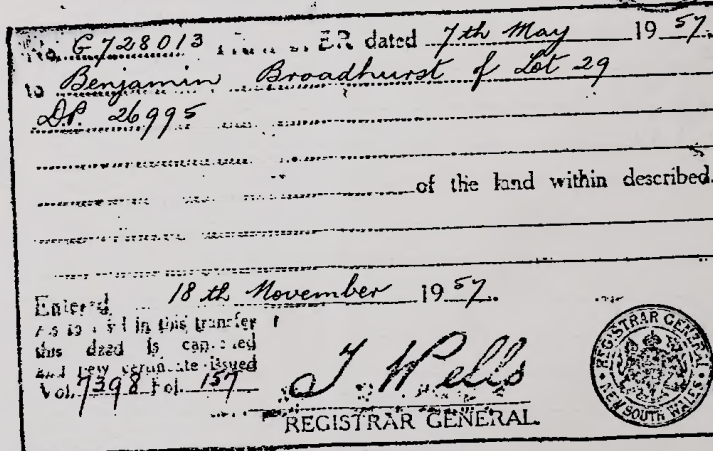 No. G 728013 TRANSFER dated 7th May 1957.
to Benjamin Broadhurst of Lot 29
D.P. 26995
of the land within described.
Entered 18th November 1957.
As to land in this transfer
this deed is cancelled
and new certificate issued
Vol. 7398 Fol. 157
J. Wells
REGISTRAR GENERAL.
REGISTRAR GENERAL
NEW SOUTH WALES